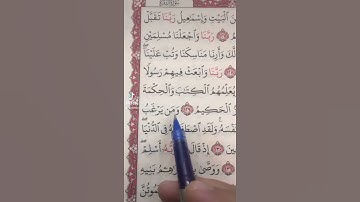 سُورَةُ البَقَرَةِ
ٱلْبَيْتِ وَإِسْمَٰعِيلُ رَبَّنَا تَقَبَّلْ
رَبَّنَا وَٱجْعَلْنَا مُسْلِمَيْنِ
لَكَ وَأَرِنَا مَنَاسِكَنَا وَتُبْ عَلَيْنَآ
رَبَّنَا وَٱبْعَثْ فِيهِمْ رَسُولًا
يُعَلِّمُهُمُ ٱلْكِتَٰبَ وَٱلْحِكْمَةَ
ٱلْحَكِيمُ ١٢٩ وَمَن يَرْغَبُ
نَفْسَهُۥ وَلَقَدِ فِى ٱلدُّنْيَا
إِذْ قَالَ رَبُّهُۥٓ أَسْلِمْ
وَوَصَّىٰ بَنِيهِ